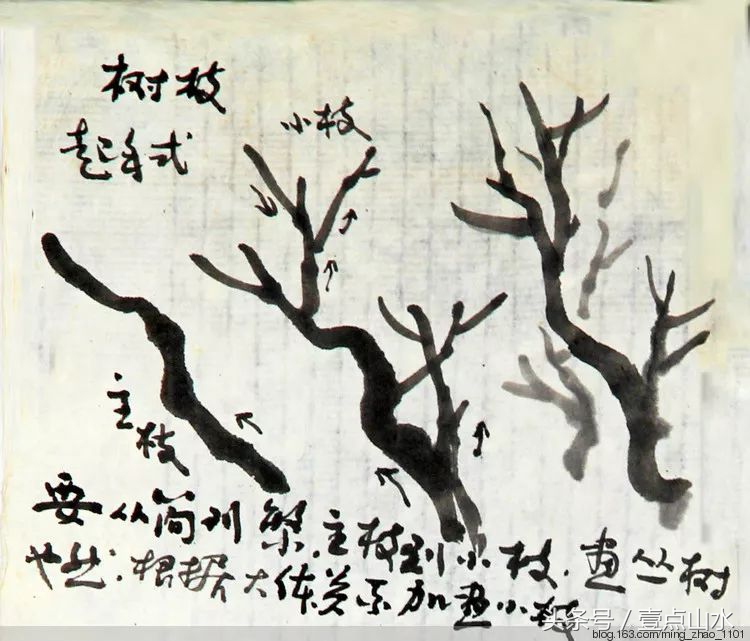 树枝
起手式
小枝
主枝
要从简到繁.主枝到小枝.画丛树
也然.根据大体关系加画小枝
头条号 / 壹点山水
blog.163.com/ming_zhao_1101